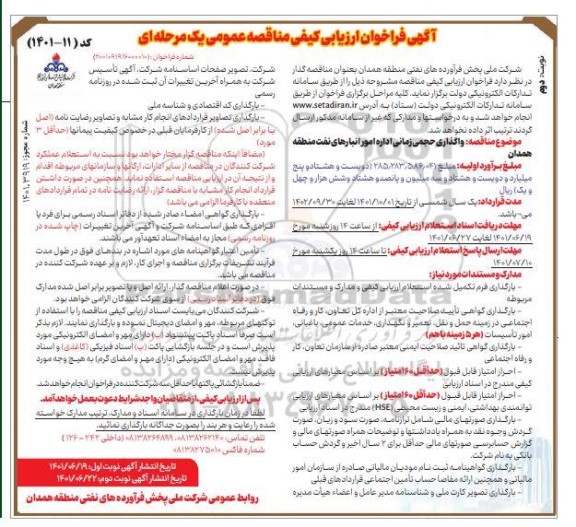 آگهی فراخوان ارزیابی کیفی مناقصه عمومی یک مرحله ای
کد (۱۱-۱۴۰۱)
نوبت: دوم
شماره مجوز: ۱۴۰۱،۳۹۱۹
شرکت ملی پخش فرآورده های نفتی منطقه همدان بعنوان مناقصه گذار
در نظر دارد فراخوان ارزیابی کیفی مناقصه مشروحه ذیل را از طریق سامانه
تدارکات الکترونیکی دولت برگزار نماید. کلیه مراحل برگزاری فراخوان از طریق
سامانه تدارکات الکترونیکی دولت (ستاد) به آدرس www.setadiran.ir
انجام خواهد شد و به درخواستها و مدارکی که غیر از سامانه مذکور ارسال
گردند ترتیب اثر داده نخواهد شد.
موضوع مناقصه: واگذاری حجمی زمانی اداره امور انبارهای نفت منطقه
همدان
مبلغ برآورد اولیه: مبلغ (۲۸۵,۲۸۳,۵۸۶,۰۴۱) (دویست و هشتاد و پنج
میلیارد و دویست و هشتاد و سه میلیون و پانصد و هشتاد و شش هزار و چهل
و یک) ریال
مدت قرارداد: یک سال شمسی از تاریخ ۱۴۰۱/۱۰/۰۱ لغایت ۱۴۰۲/۰۹/۳۰
می-باشد.
مهلت دریافت اسناد استعلام ارزیابی کیفی: از ساعت ۱۴ روز شنبه مورخ
۱۴۰۱/۰۶/۱۹ لغایت ۱۴۰۱/۰۶/۲۷
مهلت ارسال پاسخ استعلام ارزیابی کیفی: تا ساعت ۱۴ روز یکشنبه مورخ
۱۴۰۱/۰۷/۱۰
مدارک و مستندات مورد نیاز:
- بارگذاری فرم تکمیل شده استعلام ارزیابی کیفی و مدارک و مستندات
مربوطه
- بارگذاری گواهی تأیید صلاحیت معتبر از اداره کل تعاون، کار و رفاه
اجتماعی در زمینه حمل و نقل، تعمیر و نگهداری، خدمات عمومی، باغبانی،
امور تأسیسات (هر ۵ زمینه باهم)
- بارگذاری گواهی تائید صلاحیت ایمنی معتبر صادره از سازمان تعاون، کار
و رفاه اجتماعی
- احراز امتیاز قابل قبول (حداقل ۶۰ امتیاز) بر اساس معیارهای ارزیابی
کیفی مندرج در اسناد ارزیابی
- احراز امتیاز قابل قبول (حداقل ۶۰ امتیاز) بر اساس معیارهای ارزیابی
توانمندی بهداشتی، ایمنی و زیست محیطی (HSE) مندرج در اسناد ارزیابی
- بارگذاری صورتهای مالی شامل ترازنامه، صورت سود و زیان، صورت
گردش وجوه نقد به همراه یادداشتها و توضیحات همراه صورتهای مالی و
گزارش حسابرسی صورتهای مالی حداقل برای ۲ سال اخیر و گردش حساب
بانکی به نام شرکت.
- بارگذاری گواهینامه ثبت نام مودیان مالیاتی صادره از سازمان امور
مالیاتی و همچنین ارائه مفاصا حساب تأمین اجتماعی قراردادهای قبلی
- بارگذاری تصویر کارت ملی و شناسنامه مدیر عامل و اعضاء هیأت مدیره
شرکت، تصویر صفحات اساسنامه شرکت، آگهی تأسیس
شرکت به همراه آخرین تغییرات آن ثبت شده در روزنامه
رسمی
- بارگذاری کد اقتصادی و شناسه ملی
- بارگذاری تصاویر قراردادهای انجام کار مشابه و تصاویر رضایت نامه (اصل
یا برابر اصل شده) از کارفرمایان قبلی در خصوص کیفیت پیمانها (حداقل ۳
مورد)
(ضمنا اینکه مناقصه گزار مختار خواهد بود نسبت به استعلام عملکرد
شرکت کنندگان در مناقصه از سایر ادارات، ارگانها و سازمانهای مربوطه اقدام
و از نتیجه آن در ارزیابی مناقصه استفاده نماید. همچنین در صورت داشتن
قرارداد انجام کار مشابه با مناقصه گزار، ارائه رضایت نامه در تمام قراردادهای
منعقده با کارفرما الزامی می باشد)
- بارگذاری گواهی امضاء صادر شده از دفاتر اسناد رسمی برای فرد یا
افرادی که طبق اساسنامه شرکت و آگهی آخرین تغییرات (چاپ شده در
روزنامه رسمی) مجاز به امضاء اسناد تعهدآور می باشند.
- تأمین اعتبار گواهینامه های مورد اشاره در بندهای فوق در طول مدت
فرآیند تشریفات برگزاری مناقصه و اجرای کار، لازم و بر عهده شرکت کننده در
مناقصه می باشد.
- در صورت اعلام مناقصه گذار، ارائه اصل و یا تصویر برابر اصل شده مدارک
فوق (توسط دفاتر اسناد رسمی) از سوی شرکت کنندگان الزامی خواهد بود.
- شرکت کنندگان می بایست اسناد ارزیابی کیفی مناقصه را با استفاده از
توکنهای مربوطه، مهر و امضای دیجیتال نموده و بارگذاری نمایند. لازم بذکر
است صرفا اسناد پاکت پیشنهاد (ب) دارای مهر و امضای الکترونیکی مورد
پذیرش است و در جلسه بازگشایی پاکت (ب) اسناد فیزیکی (کاغذی) و اسناد
فاقد مهر و امضای الکترونیکی (دارای مهر و امضای گرم) به هیچ وجه مورد
پذیرش نیست.
- ضمنا بازگشائی پاکتها با حداقل سه شرکت کننده در فراخوان انجام خواهد شد.
پس از ارزیابی کیفی، از متقاضیان واجد شرایط دعوت بعمل خواهد آمد.
لطفا در زمان بارگذاری در سامانه اسناد و مدارک، ترتیب مدارک خواسته
شده را رعایت و هر بند را بصورت جداگانه بارگذاری نمائید.
تاریخ انتشار آگهی نوبت اول: ۱۴۰۱/۰۶/۱۹
تاریخ انتشار آگهی نوبت دوم: ۱۴۰۱/۰۶/۲۲
روابط عمومی شرکت ملی پخش فرآورده های نفتی منطقه همدان